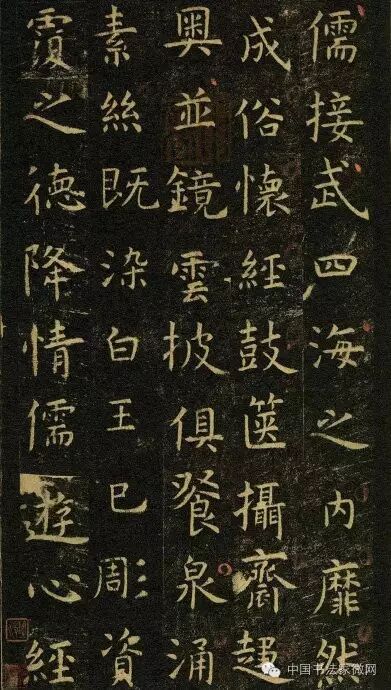 儒接武四海之内靡然
成俗懷經鼓篋攝齋趍
奥並鏡雲披俱餐泉涌
素絲既染白王已彫資
覆之德降情儒遊心經
中国书法家微网